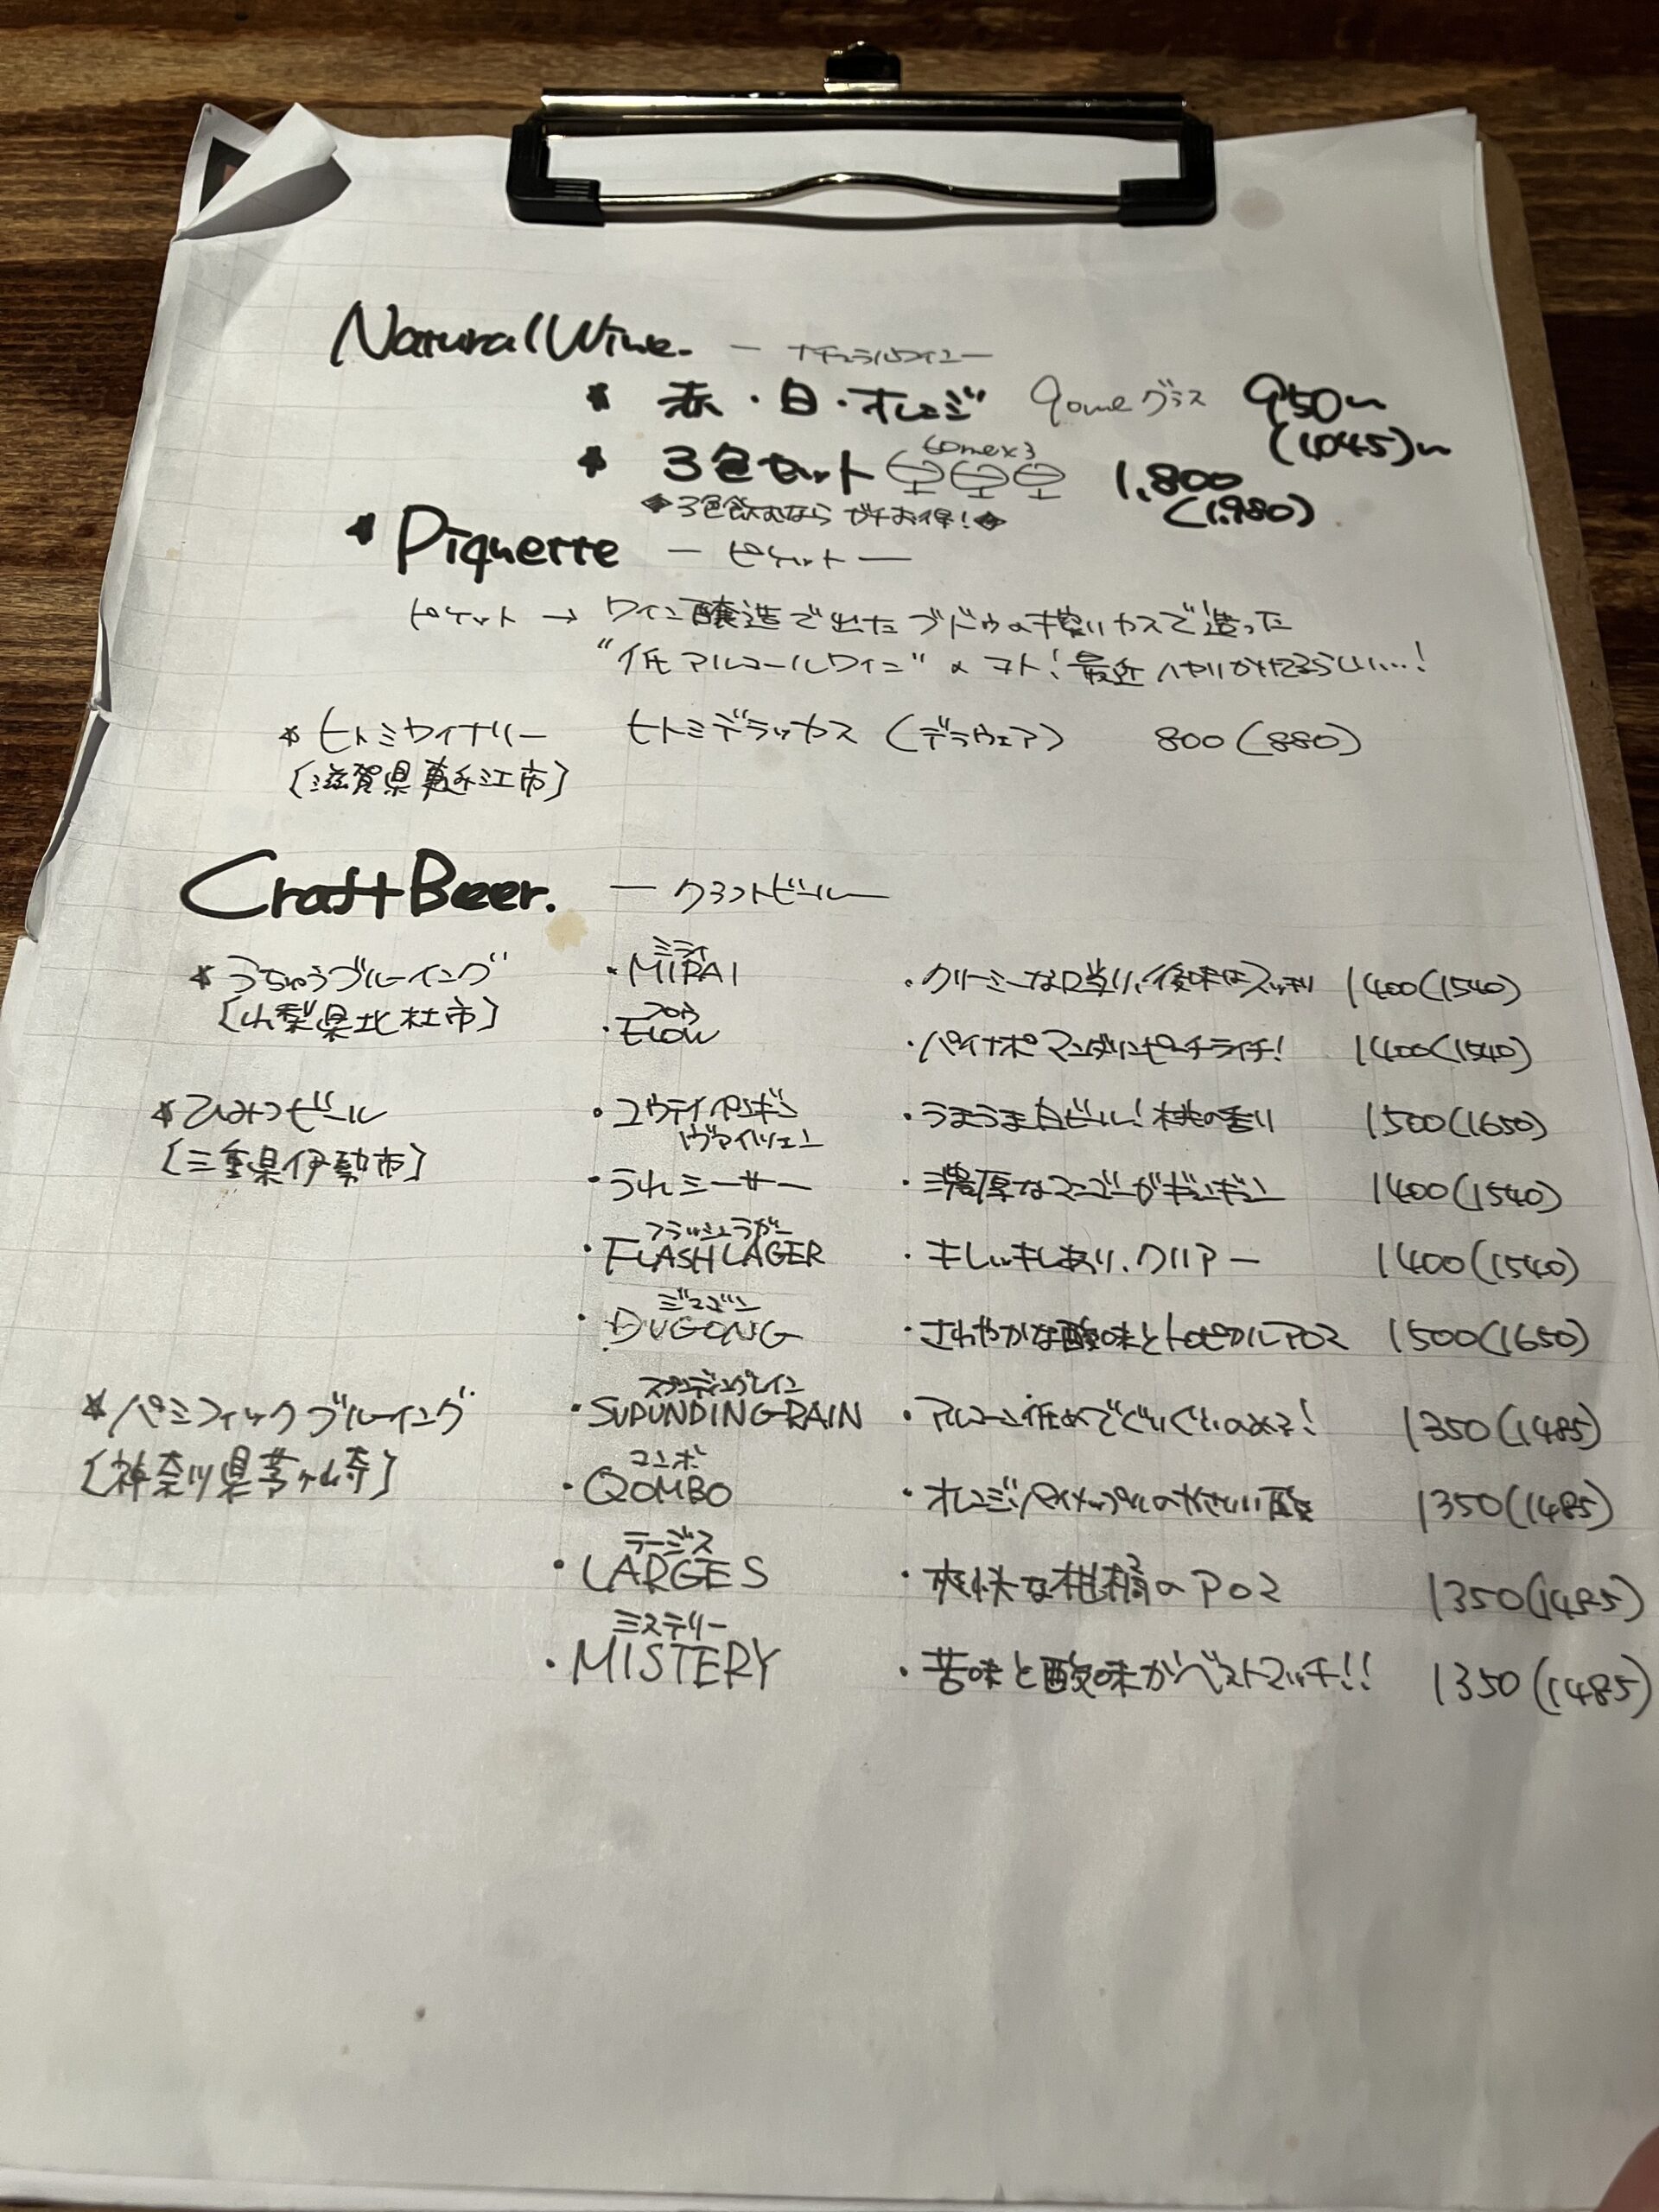 Natural Wine. ー ナチュラルワイン ー
★ 赤・白・オレンジ 90mlグラス 950〜
(1,045)〜
★ 3色セット 60ml×3 1,800
(1,980)
◆3色飲むならガチお得!◆
★ Piquette ー ピケット ー
ピケット → ワイン醸造で出たブドウの搾りカスで造った
"低アルコールワイン"のコト! 最近ハヤりかけてるらしい…!
★ ヒトミワイナリー ヒトミデラッカス (デラウェア) 800(880)
[滋賀県東近江市]
Craft Beer. ー クラフトビール ー
★ うちゅうブルーイング ・MIRAI ミライ ・クリーミーな口当り、後味はスッキリ 1400(1540)
[山梨県北杜市] ・FLOW フロウ ・パイナポマンダリンピーチライチ! 1400(1540)
★ ひみつビール ・ユウテイペンギン ヴァイツェン ・うまうま白ビール! 桃の香り 1500(1650)
[三重県伊勢市] ・うれシーサー ・濃厚なマンゴーがギュンギュン 1400(1540)
・FLASH LAGER フラッシュラガー ・キレッキレあり、クリアー 1400(1540)
・DUGONG ジュゴン ・さわやかな酸味とトロピカルアロマ 1500(1650)
★ パシフィックブルーイング ・SUDUNDING RAIN ・アルコール低めでぐいぐいのめる! 1350(1485)
[神奈川県茅ヶ崎] ・QOMBO コンボ ・オレンジ、パイナップルのやさしい酸 1350(1485)
・LARGES ラージス ・爽快な柑橘のアロマ 1350(1485)
・MISTERY ミステリー ・苦味と酸味がベストマッチ!! 1350(1485)